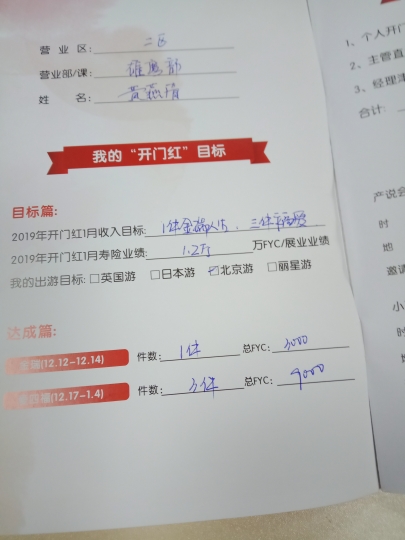 营业区: 二区
营业部/课: 雄鹰部
姓名: 黄燕清
我的“开门红”目标
目标篇:
2019年开门红1月收入目标: 1件金瑞人生、三件幸福
2019年开门红1月寿险业绩: 1.2万 万FYC/展业业绩
我的出游目标: □英国游 □日本游 ☑北京游 □丽星游
达成篇:
(12.12-12.14) 件数: 1件 总FYC: 3000
(12.17-1.4) 件数: 3件 总FYC: 9000
1、个人开门
2、主管直
3、经理津
合计:
产说会
时
地
邀请
小
时
地